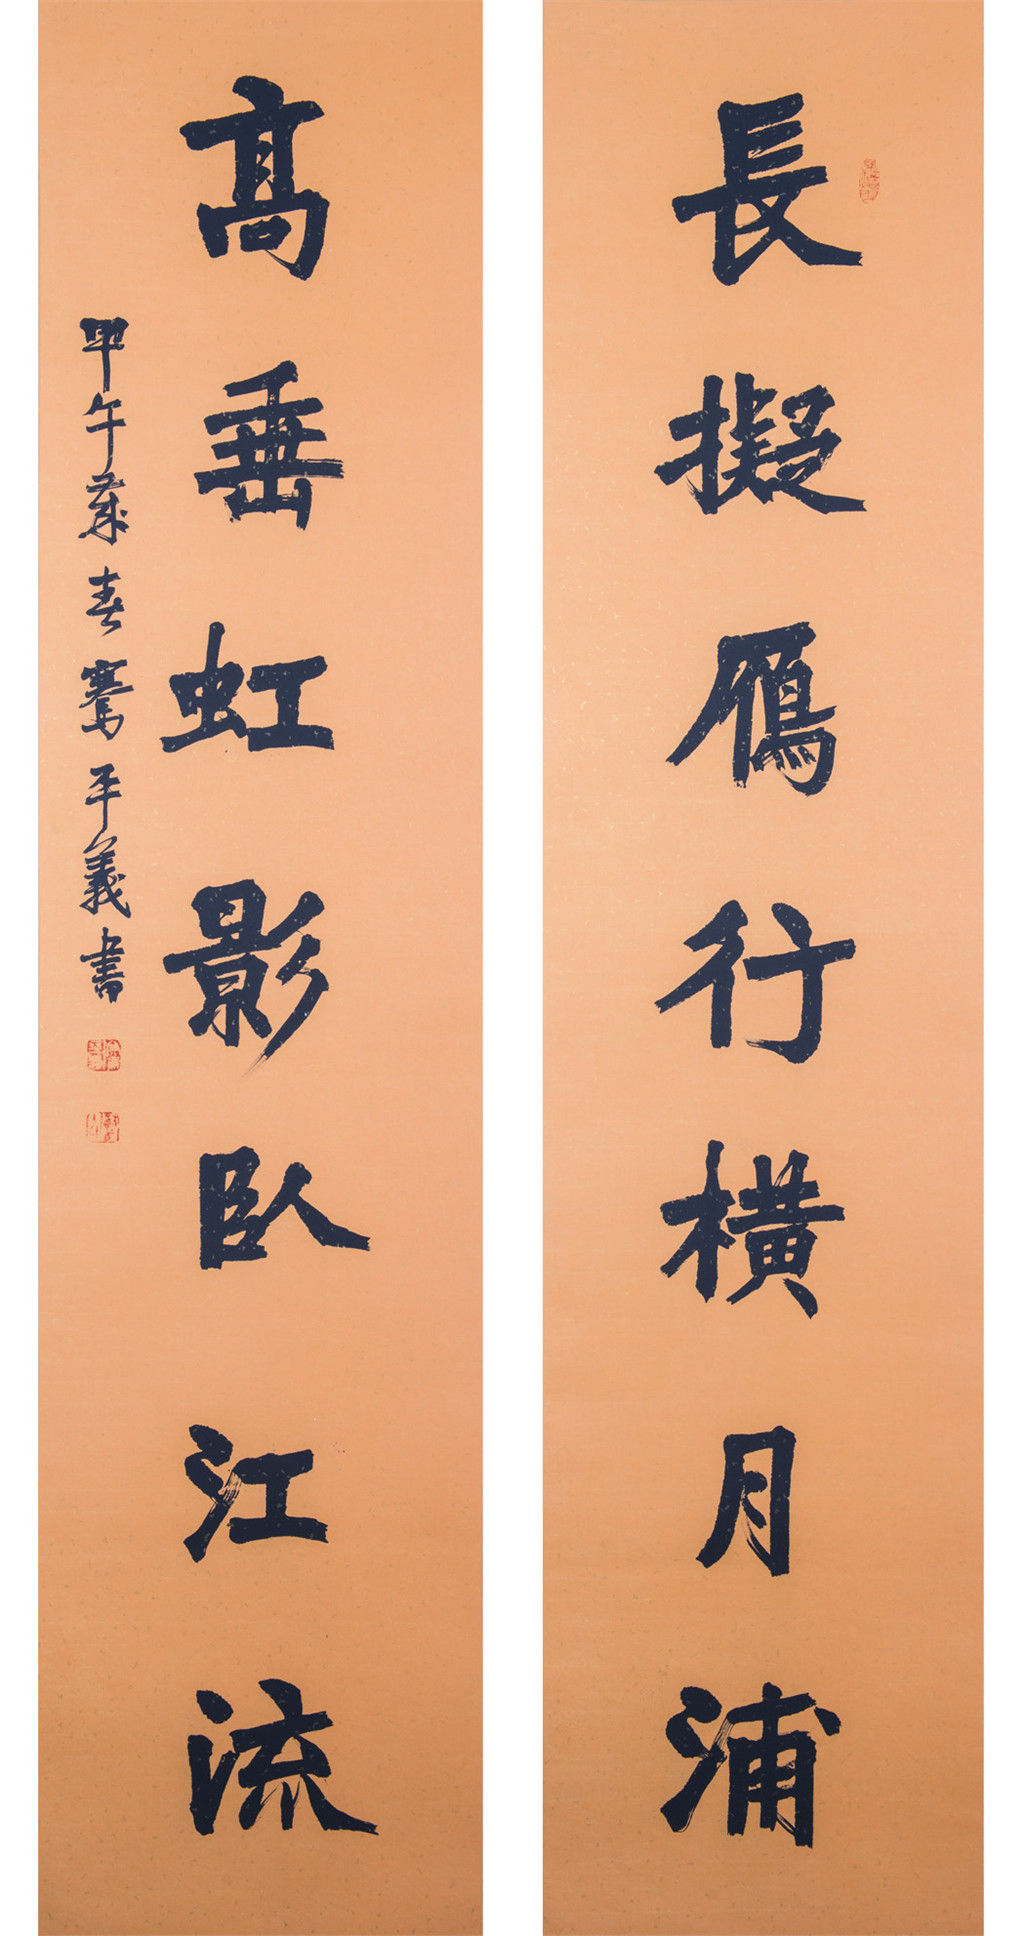 長擬鴈行橫月浦
髙垂虹影臥江流
甲午歲春騫平義書